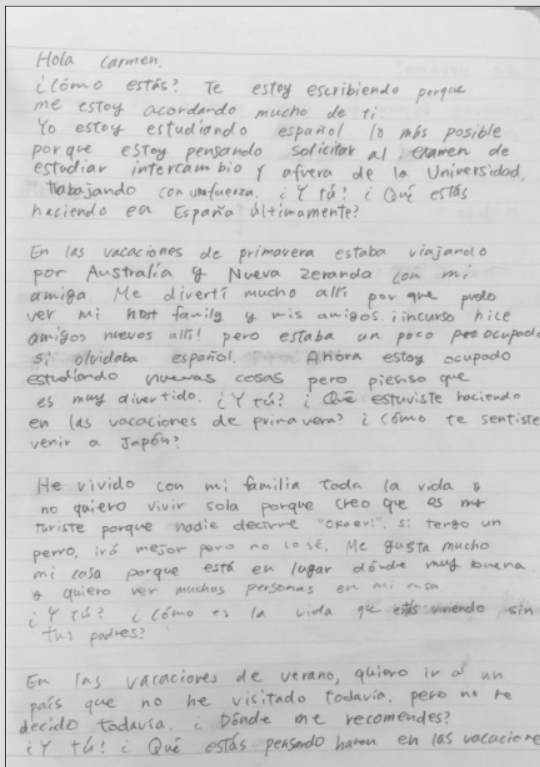 Hola Carmen.
¿Cómo estás? Te estoy escribiendo porque
me estoy acordando mucho de ti
Yo estoy estudiando español lo más posible
porque estoy pensando solicitar al examen de
estudiar intercambio y afuera de la Universidad.
trabajando con fuerza. ¿Y tú? ¿Qué estás
haciendo en España últimamente?
En las vacaciones de primavera estaba viajando
por Australia y Nueva Zeranda con mi
amiga Me divertí mucho allí por que pudo
ver mi host family y mis amigos. ¡incurso hice
amigos nuevos allí! pero estaba un poco preocupado
si olvidaba español. Ahora estoy ocupado
estudiando nuevas cosas pero pienso que
es muy divertido. ¿Y tú? ¿Qué estuviste haciendo
en las vacaciones de primavera? ¿Cómo te sentiste
venir a Japón?
He vivido con mi familia toda la vida y
no quiero vivir sola porque creo que es
turiste porque nadie decirme "Okaeri". si tengo un
perro, irá mejor pero no lo sé. Me gusta mucho
mi casa porque está en lugar dónde muy buena
y quiero ver muchas personas en mi casa
¿Y tú? ¿Cómo es la vida que estás viviendo sin
tus padres?
En las vacaciones de verano, quiero ir a un
país que no he visitado todavía. pero no he
decido todavía. ¿Dónde me recomendes?
¿Y tú? ¿Qué estás pensando en las vacaciones